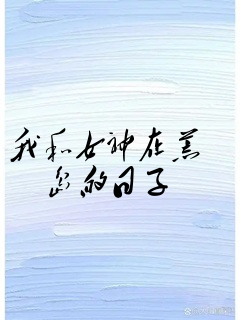 我和女神在荒
岛的日子